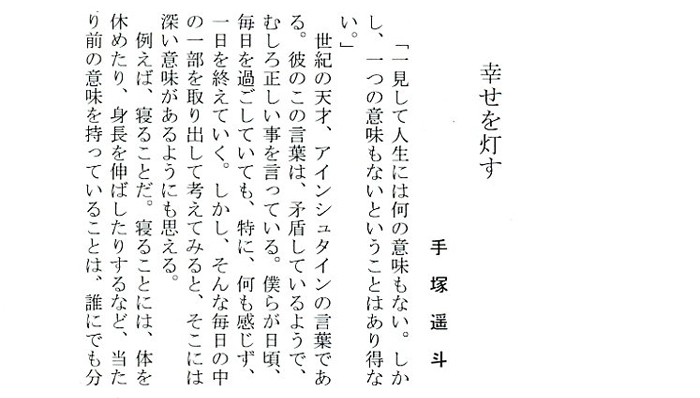 幸せを灯す
手塚遥斗
「一見して人生には何の意味もない。しか
し、一つの意味もないということはあり得な
い。」
世紀の天才、アインシュタインの言葉であ
る。彼のこの言葉は、矛盾しているようで、
むしろ正しい事を言っている。僕らが日頃、
毎日を過ごしていても、特に、何も感じず、
一日を終えていく。しかし、そんな毎日の中
の一部を取り出して考えてみると、そこには
深い意味があるようにも思える。
例えば、寝ることだ。寝ることには、体を
休めたり、身長を伸ばしたりするなど、当た
り前の意味を持っていることは、誰にでも分